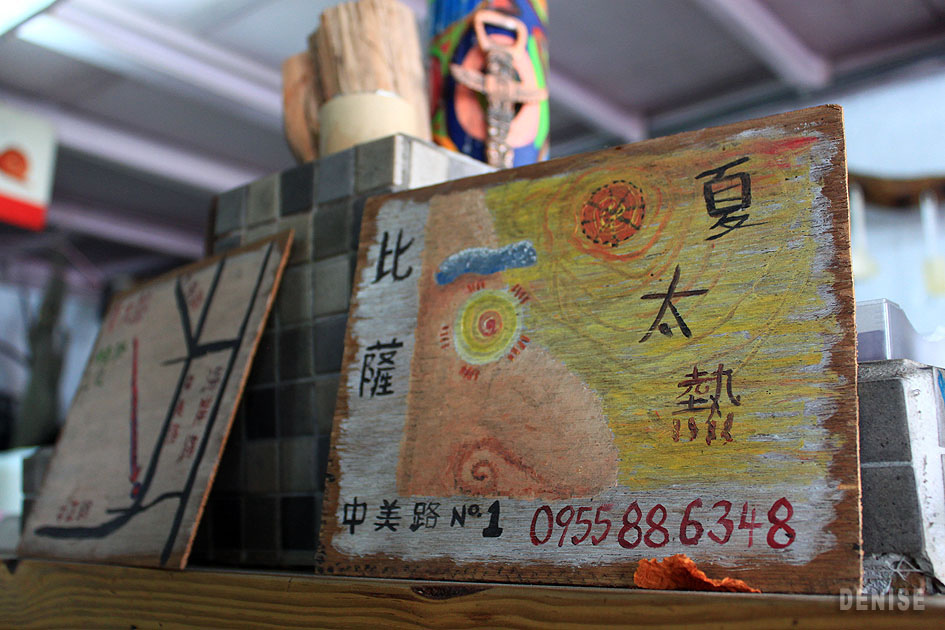 夏太熱
比薩
中美路 No. 1 0955886348
DENISE